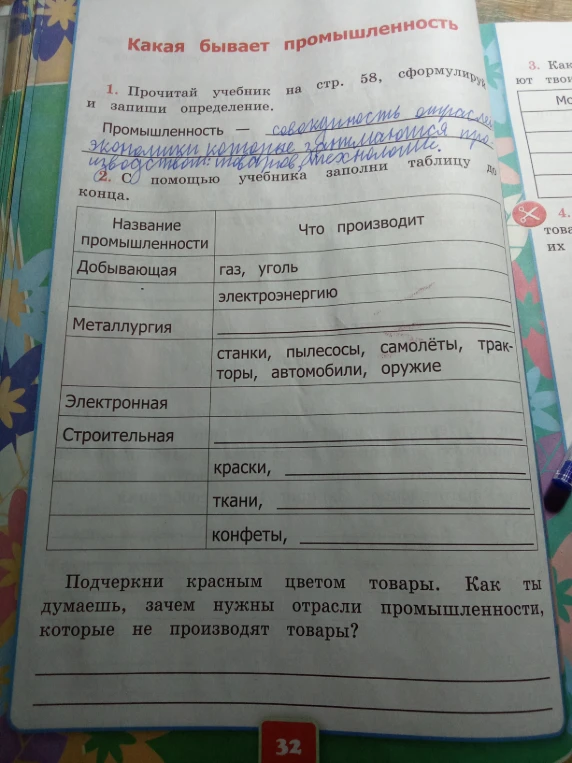 Какая бывает промышленность
1. Прочитай учебник на стр. 58, сформулируй
и запиши определение.
Промышленность — совокупность отраслей
экономики которые занимаются про-
изводством товаров, технологие.
2. С помощью учебника заполни таблицу до
конца.
Название промышленности Что производит
Добывающая газ, уголь
электроэнергию
Металлургия
станки, пылесосы, самолёты, трак-
торы, автомобили, оружие
Электронная
Строительная
краски,
ткани,
конфеты,
Подчеркни красным цветом товары. Как ты
думаешь, зачем нужны отрасли промышленности,
которые не производят товары?
32
3. Как
ют твои
4.
това
их